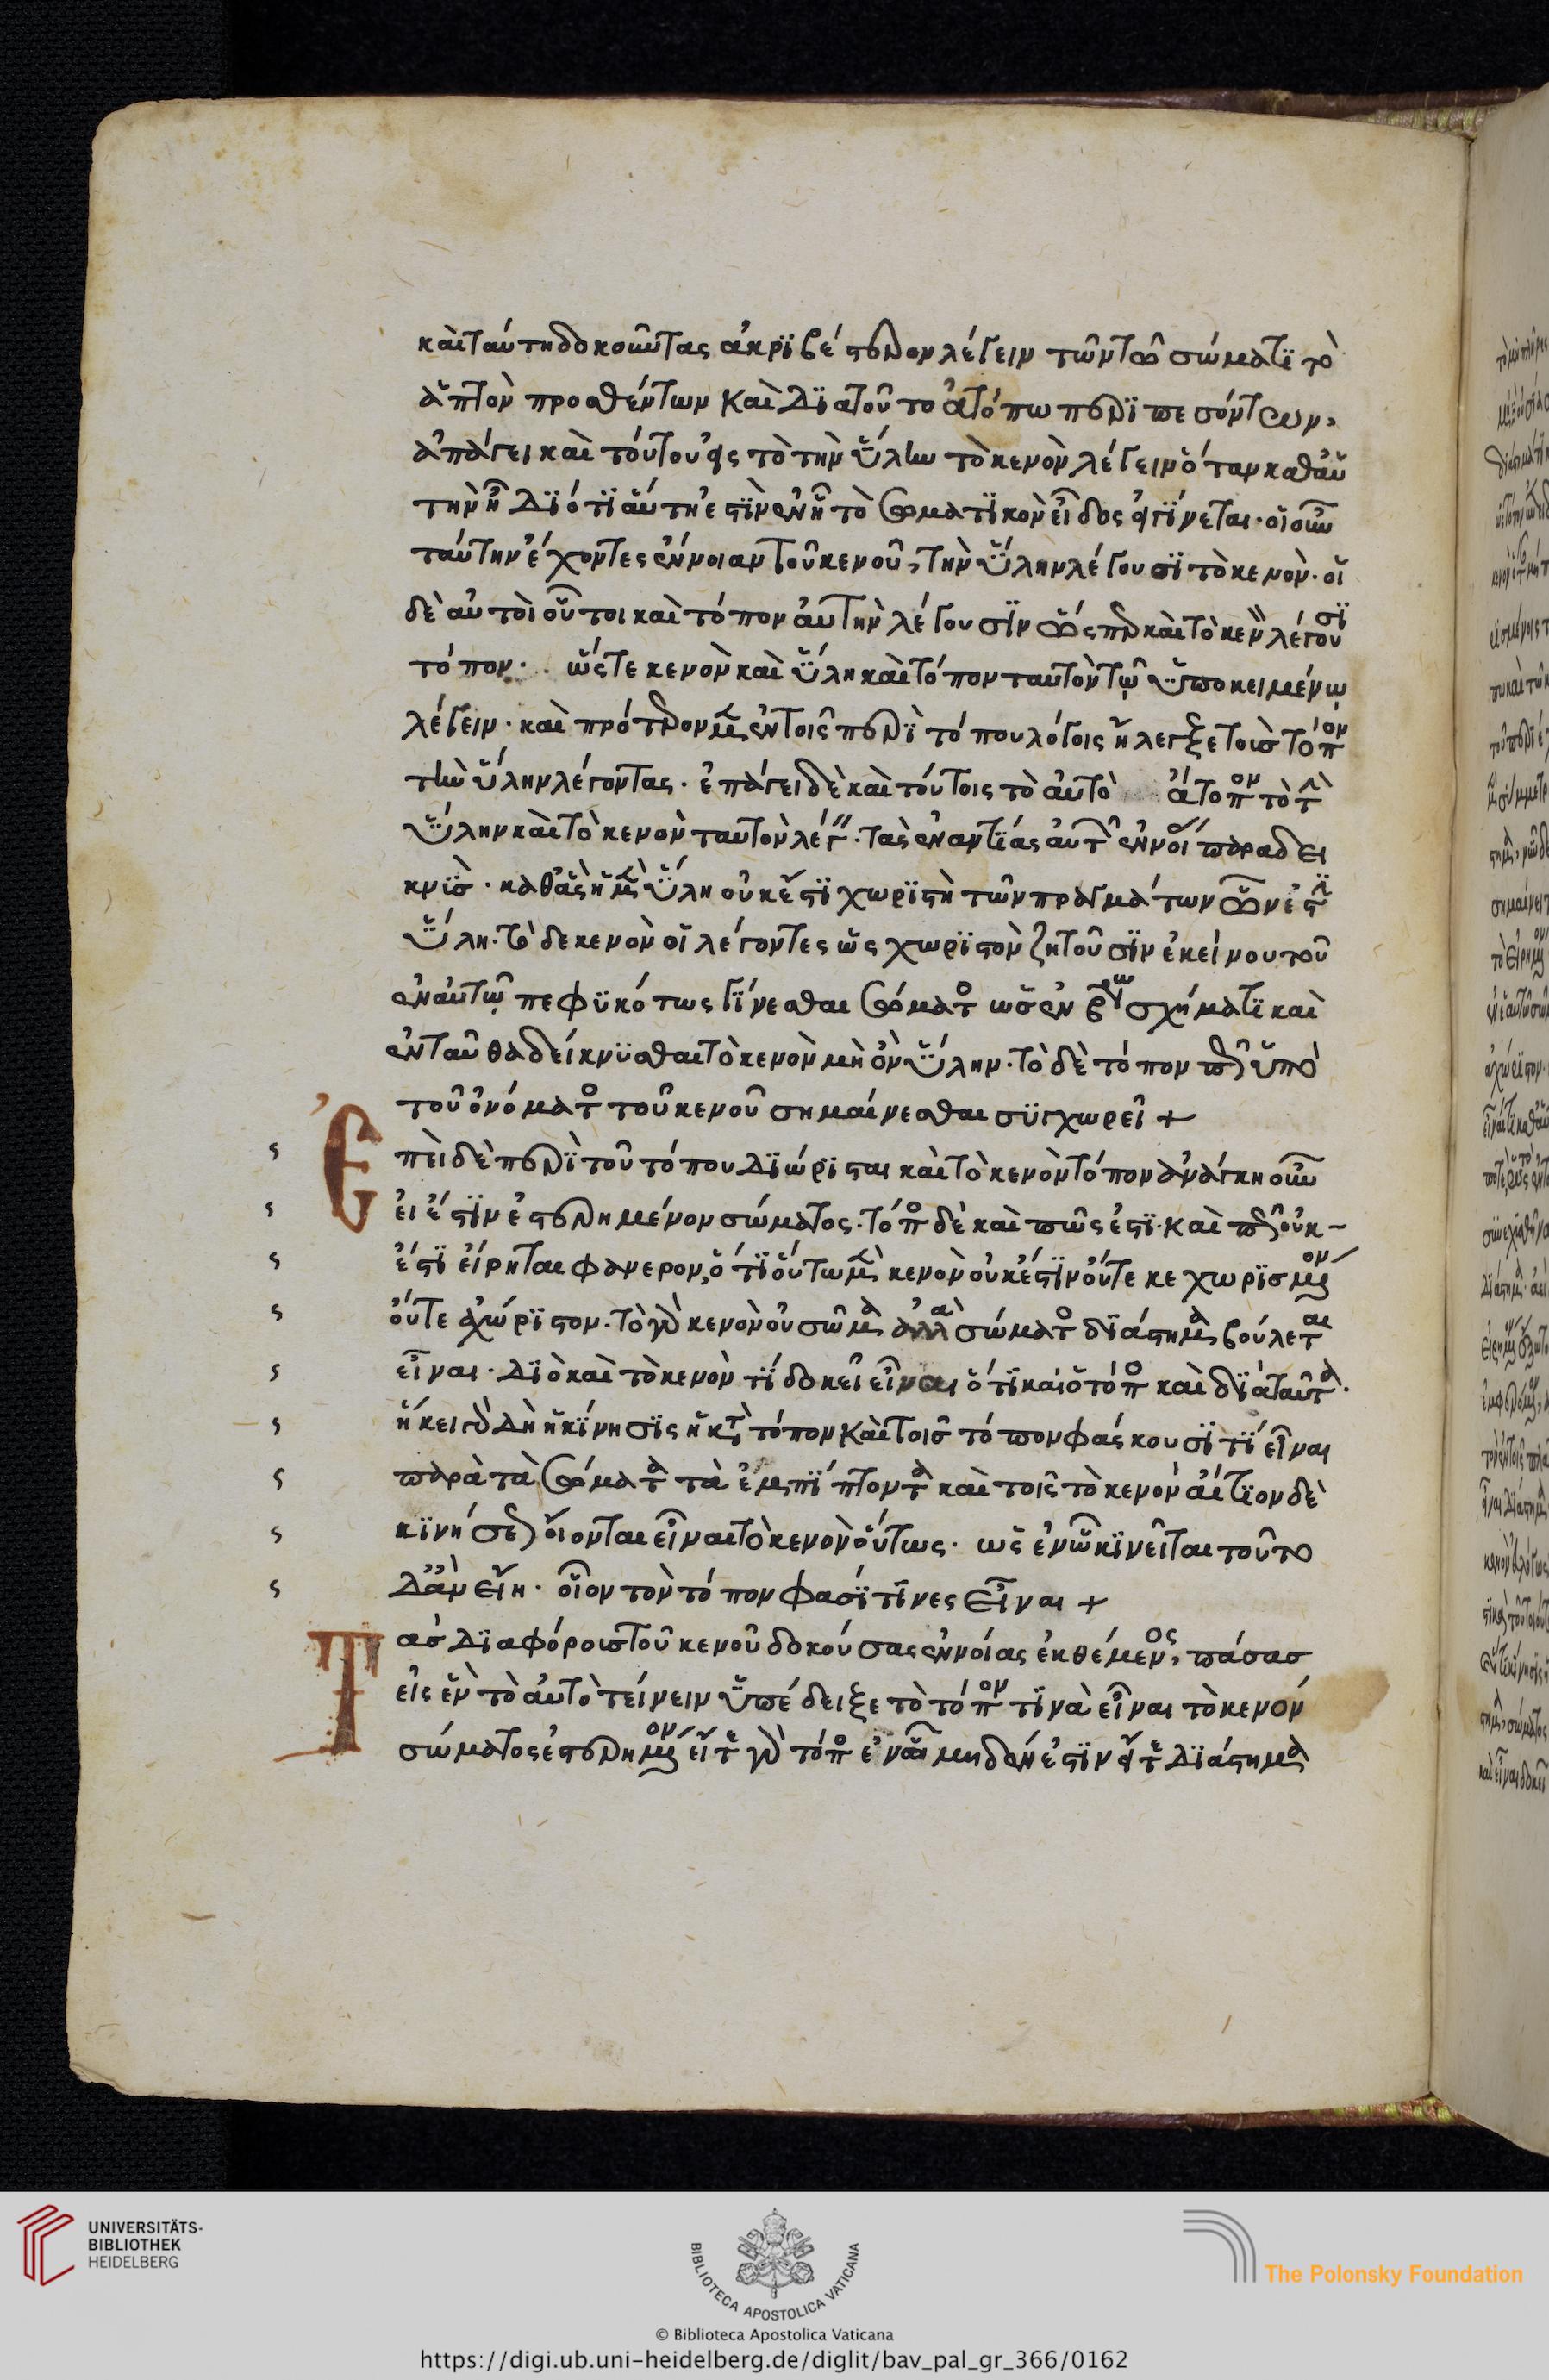 καὶ ταύτη δοκοῦντας ἀκριβέστερον λέγειν τῶν τῶ σώματι τὸ
ἁπτὸν προσθέντων καὶ διατοῦτο ἀτόπω περιπεσόντων,
ἀπάγει καὶ τούτους εἰς τὸ τὴν ὕλην τὸ κενὸν λέγειν ὅταν καθαὑ
τὴν ἦ διότι αὕτη ἐστὶν ἐν ἧ τὸ σωματικὸν εἶδος ἐγγίνεται· οἱ οὖν
ταύτην ἔχοντες ἔννοιαν τοῦ κενοῦ, τὴν ὕλην λέγουσι τὸ κενὸν· οἱ
δὲ αὐτοὶ οὗτοι καὶ τόπον αὐτὴν λέγουσιν ὥσπερ καὶ τὸ κενὸν λέγουσι
τόπον· ὥστε κενὸν καὶ ὕλη καὶ τόπον ταυτὸν τῷ ὑποκειμένῳ
λέγειν· καὶ πρότερον μὲν ἐν τοῖς περὶ τόπου λόγοις ἤλεγξε τοὺς τόπον
τὴν ὕλην λέγοντας· ἐπάγει δὲ καὶ τούτοις τὸ αὐτὸ ἄτοπον τὸ τὴν
ὕλην καὶ τὸ κενὸν ταυτὸν λέγειν· τὰς ἐναντίας αὐτῶν ἐννοίας παραδει
κνὺς· καθάς ἡ μὲν ὕλη οὐκ ἔστι χωριστὴ τῶν πραγμάτων ὧν ἐστιν
ὕλη· τὸ δε κενὸν οἱ λέγοντες ὡς χωριστὸν ζητοῦσιν ἐκείνου τοῦ
ἐν αὐτῷ πεφυκότως γίνεσθαι σώματος ὡς ἐν σχήματι καὶ
ἐνταῦθα δείκνυσθαι τὸ κενὸν μὴ ὂν ὕλην· τὸ δὲ τόπον πως ὑπὸ
τοῦ ὀνόματος τοῦ κενοῦ σημαίνεσθαι συγχωρεῖ +
Ἐπεὶ δὲ περὶ τοῦ τόπου διώρισται καὶ τὸ κενὸν τόπον ἀνάγκη οὖν
εἰ ἔστιν ἐστερημένον σώματος· τόπος δὲ καὶ πῶς ἔστι· καὶ πῶς οὐκ
ἔστι εἴρηται φανερον, ὅτι οὕτω μὲν κενὸν οὐκ ἔστιν οὔτε κεχωρισμένον
οὔτε ἀχώριστον· τὸ γὰρ κενὸν οὐ σῶμα ἀλλὰ σώματος διάστημα βούλεται
εἶναι· διὸ καὶ τὸ κενὸν τί δοκεῖ εἶναι ὅτι καὶ ὁ τόπος καὶ διὰ ταῦτα·
ἥκει γὰρ δὴ ἡ κίνησις ἡ κατὰ τόπον καὶ τοῖς τόπον φάσκουσί τι εἶναι
παρὰ τὰ σώματα τὰ ἐμπίπτοντα καὶ τοῖς τὸ κενὸν αἴτιον δὲ
κινήσεως οἴονται εἶναι τὸ κενὸν οὕτως· ὡς ἐν ὧ κινεῖται τοῦτο
δ' ἂν εἴη· οἷον τὸν τόπον φασί τινες εἶναι +
Τὰς διαφόροις τοῦ κενοῦ δοκούσας ἐννοίας ἐκθέμενος, πάσας
εἰς ἓν τὸ αὐτὸ τείνειν ὑπέδειξε τὸ τόπον τινὰ εἶναι τὸ κενόν
σώματος ἐστερημένον εἴτε γὰρ τόπος ἐν ᾧ μηδέν ἐστιν εἴτε διάστημα
UNIVERSITÄTS-
BIBLIOTHEK
HEIDELBERG
BIBLIOTECA APOSTOLICA VATICANA
The Polonsky Foundation
© Biblioteca Apostolica Vaticana
https://digi.ub.uni-heidelberg.de/diglit/bav_pal_gr_366/0162